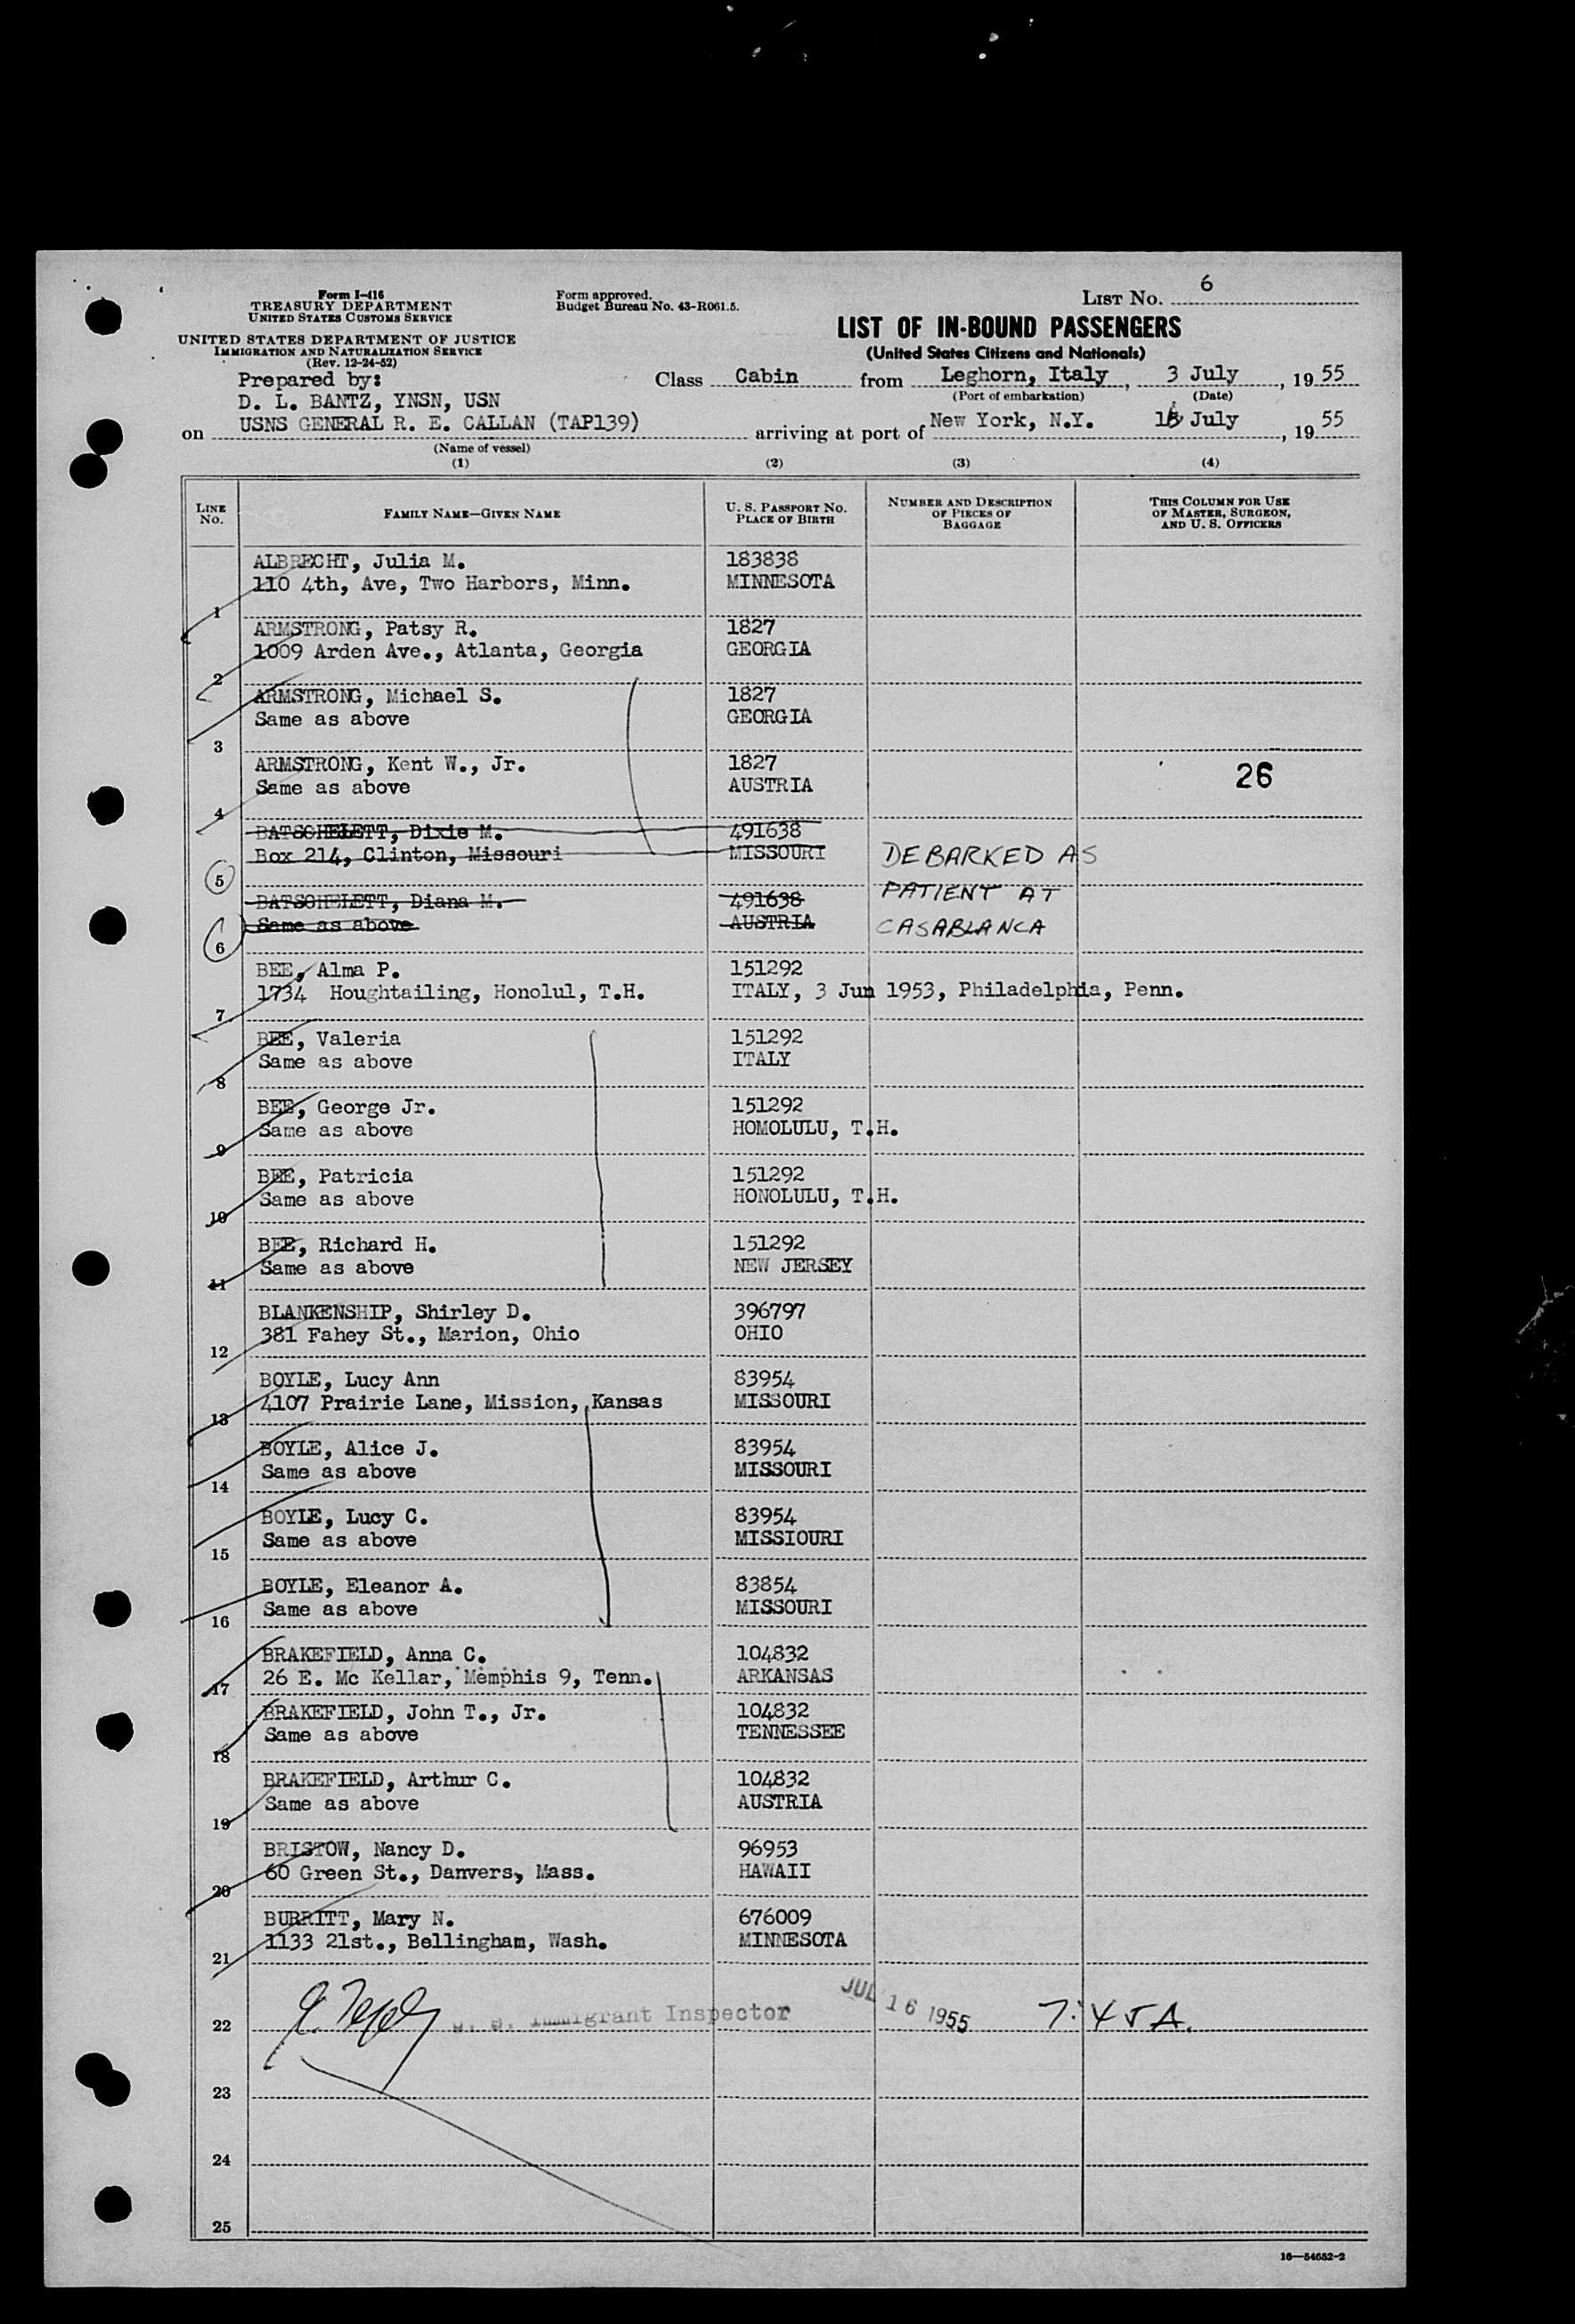 Form I-416
TREASURY DEPARTMENT
UNITED STATES CUSTOMS SERVICE
UNITED STATES DEPARTMENT OF JUSTICE
IMMIGRATION AND NATURALIZATION SERVICE
(Rev. 12-24-52)
Form approved.
Budget Bureau No. 43-R061.5.
LIST No. 6
LIST OF IN-BOUND PASSENGERS
(United States Citizens and Nationals)
Prepared by:
D. L. BANTZ, YNSN, USN
Class Cabin from Leghorn, Italy, 3 July, 19 55
(Port of embarkation) (Date)
on USNS GENERAL R. E. CALLAN (TAP139) arriving at port of New York, N.Y. 16 July, 19 55
(Name of vessel)
(1) (2) (3) (4)
LINE No. FAMILY NAME—GIVEN NAME U. S. PASSPORT NO. PLACE OF BIRTH NUMBER AND DESCRIPTION OF PIECES OF BAGGAGE THIS COLUMN FOR USE OF MASTER, SURGEON, AND U. S. OFFICERS
ALBRECHT, Julia M. 183838
110 4th, Ave, Two Harbors, Minn. MINNESOTA
1
ARMSTRONG, Patsy R. 1827
1009 Arden Ave., Atlanta, Georgia GEORGIA
2
ARMSTRONG, Michael S. 1827
Same as above GEORGIA
3
ARMSTRONG, Kent W., Jr. 1827
Same as above AUSTRIA 26
4
BATSCHELETT, Dixie M. 491638
Box 214, Clinton, Missouri MISSOURI DEBARKED AS
5
BATSCHELETT, Diana M. 491638 PATIENT AT
Same as above AUSTRIA CASABLANCA
6
BEE, Alma P. 151292
1734 Houghtailing, Honolul, T.H. ITALY, 3 Jun 1953, Philadelphia, Penn.
7
BEE, Valeria 151292
Same as above ITALY
8
BEE, George Jr. 151292
Same as above HOMOLULU, T.H.
9
BEE, Patricia 151292
Same as above HONOLULU, T.H.
10
BEE, Richard H. 151292
Same as above NEW JERSEY
11
BLANKENSHIP, Shirley D. 396797
381 Fahey St., Marion, Ohio OHIO
12
BOYLE, Lucy Ann 83954
4107 Prairie Lane, Mission, Kansas MISSOURI
13
BOYLE, Alice J. 83954
Same as above MISSOURI
14
BOYLE, Lucy C. 83954
Same as above MISSIOURI
15
BOYLE, Eleanor A. 83854
Same as above MISSOURI
16
BRAKEFIELD, Anna C. 104832
26 E. Mc Kellar, Memphis 9, Tenn. ARKANSAS
17
BRAKEFIELD, John T., Jr. 104832
Same as above TENNESSEE
18
BRAKEFIELD, Arthur C. 104832
Same as above AUSTRIA
19
BRISTOW, Nancy D. 96953
60 Green St., Danvers, Mass. HAWAII
20
BURRITT, Mary N. 676009
1133 21st., Bellingham, Wash. MINNESOTA
21
22 U. S. Immigrant Inspector JUL 16 1955
23
24
25
16—54652-2